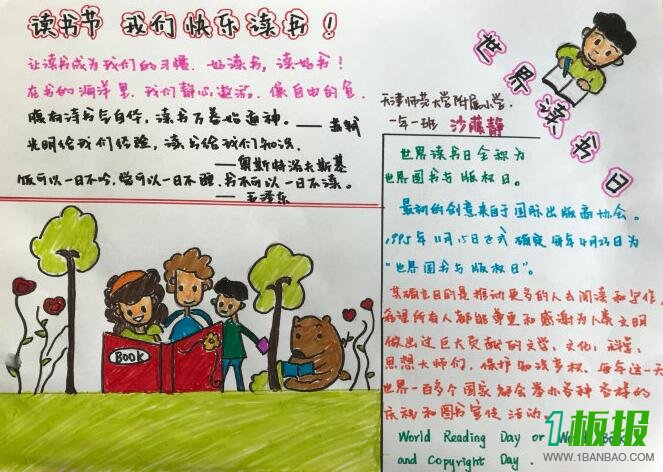 读书节 我们快乐读书！
让读书成为我们的习惯，好读书，读好书！
在书的海洋里，我们静心遨游，像自由的鱼
腹有诗书气自华，读书万卷始通神。——苏轼
光明给我们经验，读书给我们知识。
——奥斯特洛夫斯基
饭可以一日不吃，觉可以一日不睡，书不可以一日不读。
——毛泽东
BOOK
世界读书日
天津师范大学附属小学
一年一班 沙蕴静
世界读书日全称为
世界图书与版权日。
最初的创意来自于国际出版商协会。
1995年11月15日正式确定每年4月23日为
“世界图书与版权日”。
其确立目的是推动更多的人去阅读和写作，
希望所有人都能尊重和感谢为人类文明
做出过巨大贡献的文学、文化、科学、
思想大师们，保护知识产权。每年这一天
世界一百多个国家都会举办各种各样的
庆祝和图书宣传活动。
World Reading Day or World Book
and Copyright Day.
1板报
WWW.1BANBAO.COM